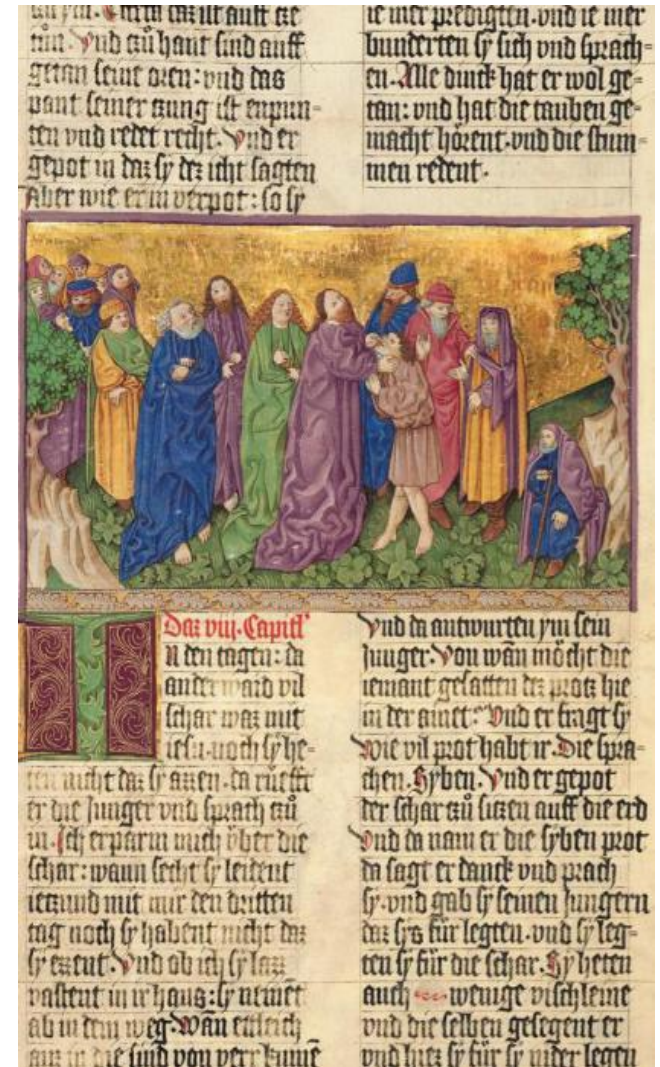 daz ist auff tze
tůn. Vnd zů hant sind auff
getan seine oren: vnd das
pant seiner zung ist enpun=
ten vnd redet recht. Vnd er
gepot in daz sy dez icht sagten
Aber wie er in verpot: so sy
ie mer predigten. vnd ie mer
bunderten sy sich vnd sprach=
en. Alle dinck hat er wol ge=
tan: vnd hat die tauben ge=
macht hörent. vnd die stum=
men redent.
Daz viij. Capitl
In den tagen: da
ander ward vil
schar waz mit
iesu. noch sy he=
ten nicht daz sy azzen. da rüfft
er die Junger vnd sprach zů
in. Ich erparm mich über die
schar: wann secht sy leident
ietzund mit mir den dritten
tag noch sy habent nicht daz
sy ezzent. Vnd ob ich sy laz
vastent in ir haus: sy
ab in dem weg. Wan etleich
auz in die sind von verr
Vnd da antwurten ym sein
Junger. Von wan möcht die
iemant gesatten dez protz hie
in der ainet: Vnd er fragt sy
Wie vil prot habt ir. Die spra=
chen. Syben. Vnd er gepot
der schar zů sitzen auff die erd
Vnd da nam er die syben prot
da sagt er danck vnd prach
sy. vnd gab sy seinen Jungern
daz sys für legten. vnd sy leg=
ten sy für die schar. Sy heten
auch wenige vischleine
vnd die selben gesegent er
vnd hiez sy für sy nider legen